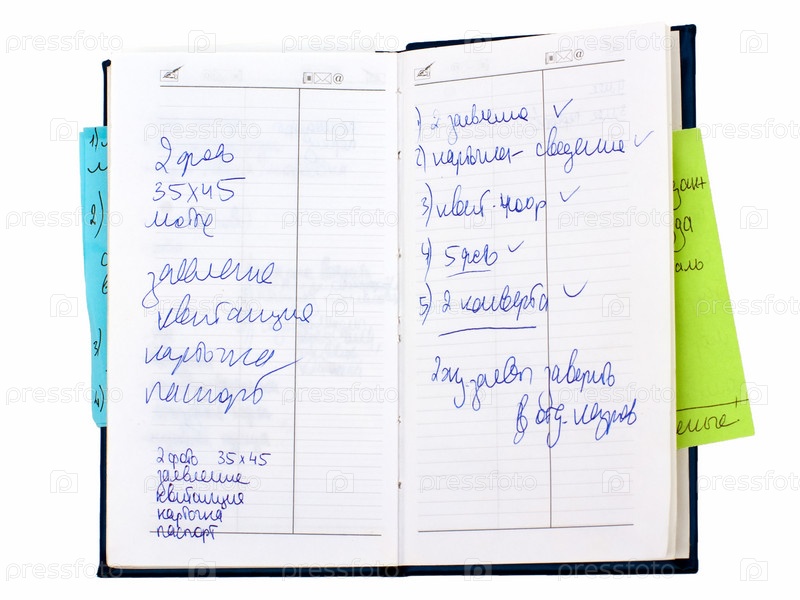 2 фото
35х45
матов
заявление
квитанция
карточка
паспорт
2 фото 35х45
заявление
квитанция
карточка
паспорт
1) 2 заявления ✓
2) карточка - сведение ✓
3) квит.
4) 5 фото ✓
5) 2 конверта ✓
заверить
в отд. кадров
1)
2)
3)
4)
аль
@
@
pressfoto